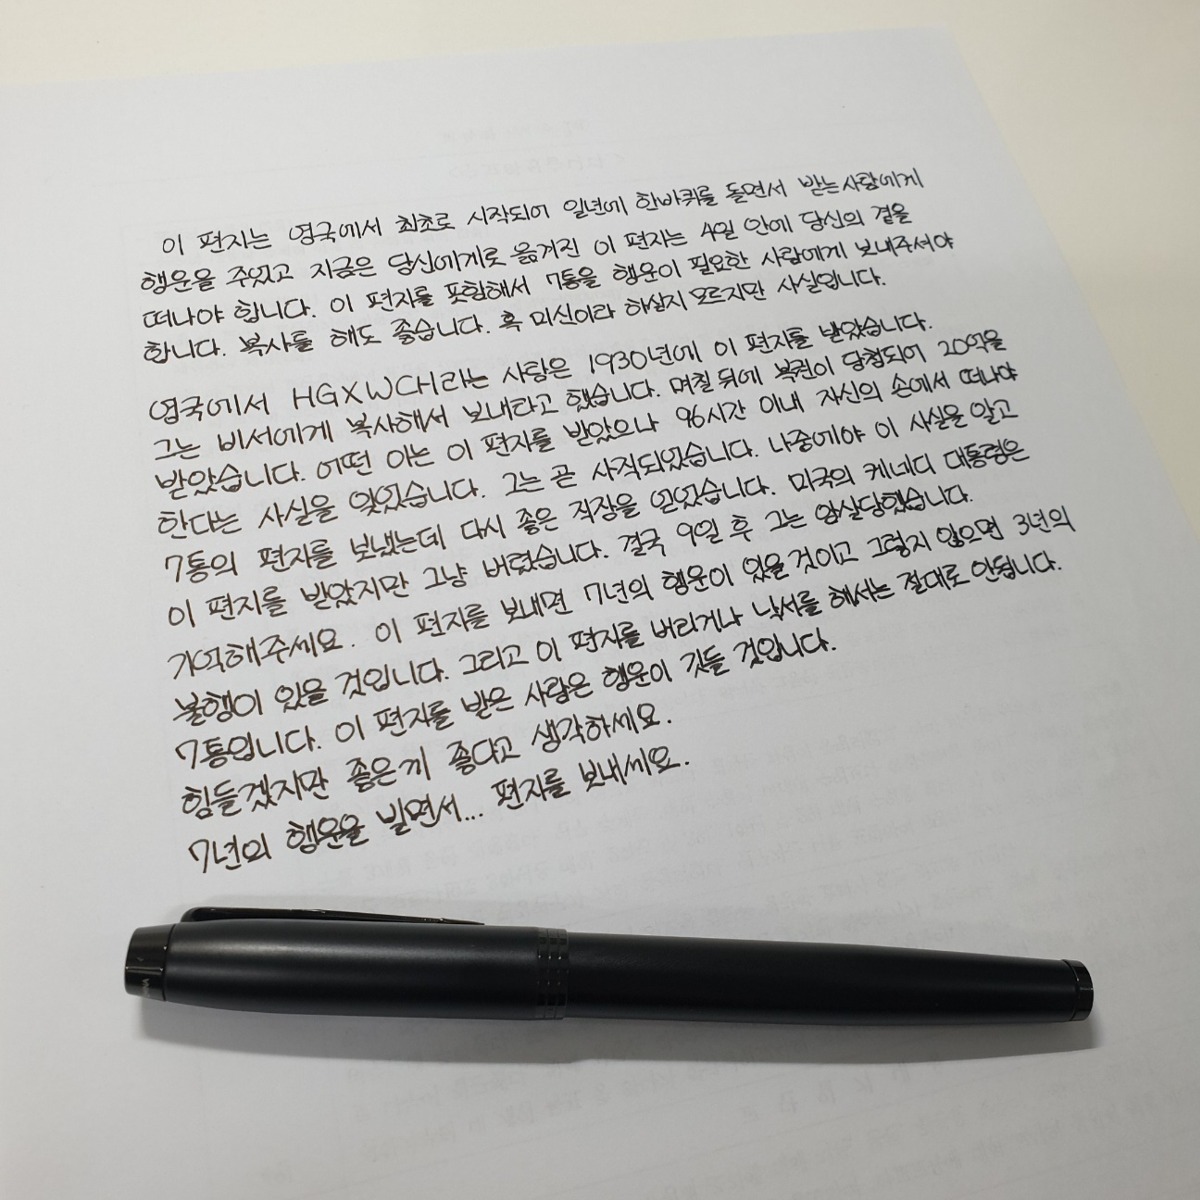 이 편지는 영국에서 최초로 시작되어 일년에 한바퀴를 돌면서 받는사람에게
행운을 주었고 지금은 당신에게로 옮겨진 이 편지는 4일 안에 당신의 곁을
떠나야 합니다. 이 편지를 포함해서 7통을 행운이 필요한 사람에게 보내주셔야
합니다. 복사를 해도 좋습니다. 혹 미신이라 하실지 모르지만 사실입니다.
영국에서 HGXWCH라는 사람은 1930년에 이 편지를 받았습니다.
그는 비서에게 복사해서 보내라고 했습니다. 며칠 뒤에 복권이 당첨되어 20억을
받았습니다. 어떤 이는 이 편지를 받았으나 96시간 이내 자신의 손에서 떠나야
한다는 사실을 잊었습니다. 그는 곧 사직되었습니다. 나중에야 이 사실을 알고
7통의 편지를 보냈는데 다시 좋은 직장을 얻었습니다. 미국의 케네디 대통령은
이 편지를 받았지만 그냥 버렸습니다. 결국 9일 후 그는 암살당했습니다.
기억해주세요. 이 편지를 보내면 7년의 행운이 있을 것이고 그렇지 않으면 3년의
불행이 있을 것입니다. 그리고 이 편지를 버리거나 낙서를 해서는 절대로 안됩니다.
7통입니다. 이 편지를 받은 사람은 행운이 깃들 것입니다.
힘들겠지만 좋은게 좋다고 생각하세요.
7년의 행운을 빌면서... 편지를 보내세요.